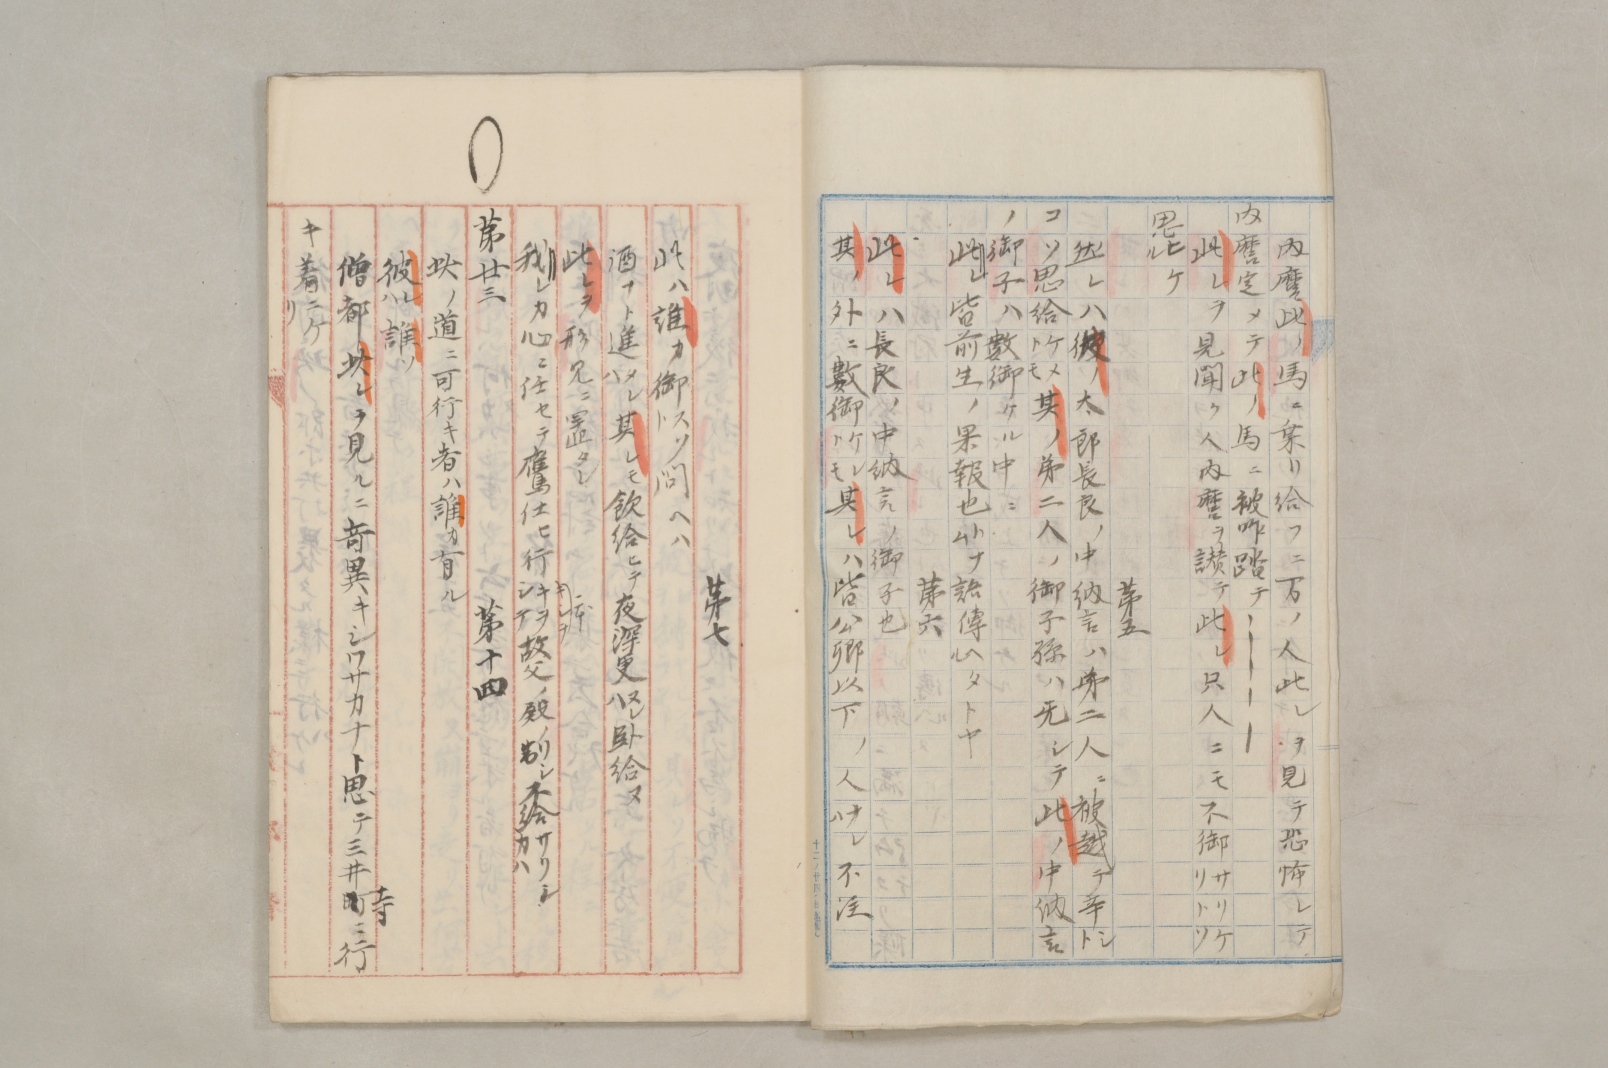 内麿此ノ馬ニ乗リ給フニ万ノ人此レヲ見テ恐怖レテ
内麿定メテ此ノ馬ニ被咋踏テ
此レヲ見聞ク人内麿ヲ讃テ此レ只人ニモ不御サリケリトソ
思ヒケル
第五
然レハ彼ノ太郎長良ノ中納言ハ弟二人ニ被越テ辛シト
コソ思給ケメトモ其ノ弟二人ノ御子孫ハ无シテ此ノ中納言
ノ御子ハ數御ケル中ニ
此レ皆前生ノ果報也トナム語傳ヘタトヤ
第六
此レハ長良ノ中納言ノ御子也
其ノ外ニ數御ケレトモ其レハ皆公卿以下ノ人ナレハ不注
第七
此ハ誰カ御スソト問ヘハ
酒フト進メレハ其レモ飲給ヒテ夜深更ヌレハ臥給ヌ
此レヲ形見ニ置タレ
我レカ心ニ任セテ鷹仕ヒ行キシヲ故父ノ殿ノ制シ不給サリシカハ
第廿三
第十四
此ノ道ニ可行キ者ハ誰カ有ル
彼レハ誰ソ
僧都此レヲ見ルニ奇異キシワサカナト思テ三井寺ニ行
キ着ニケリ